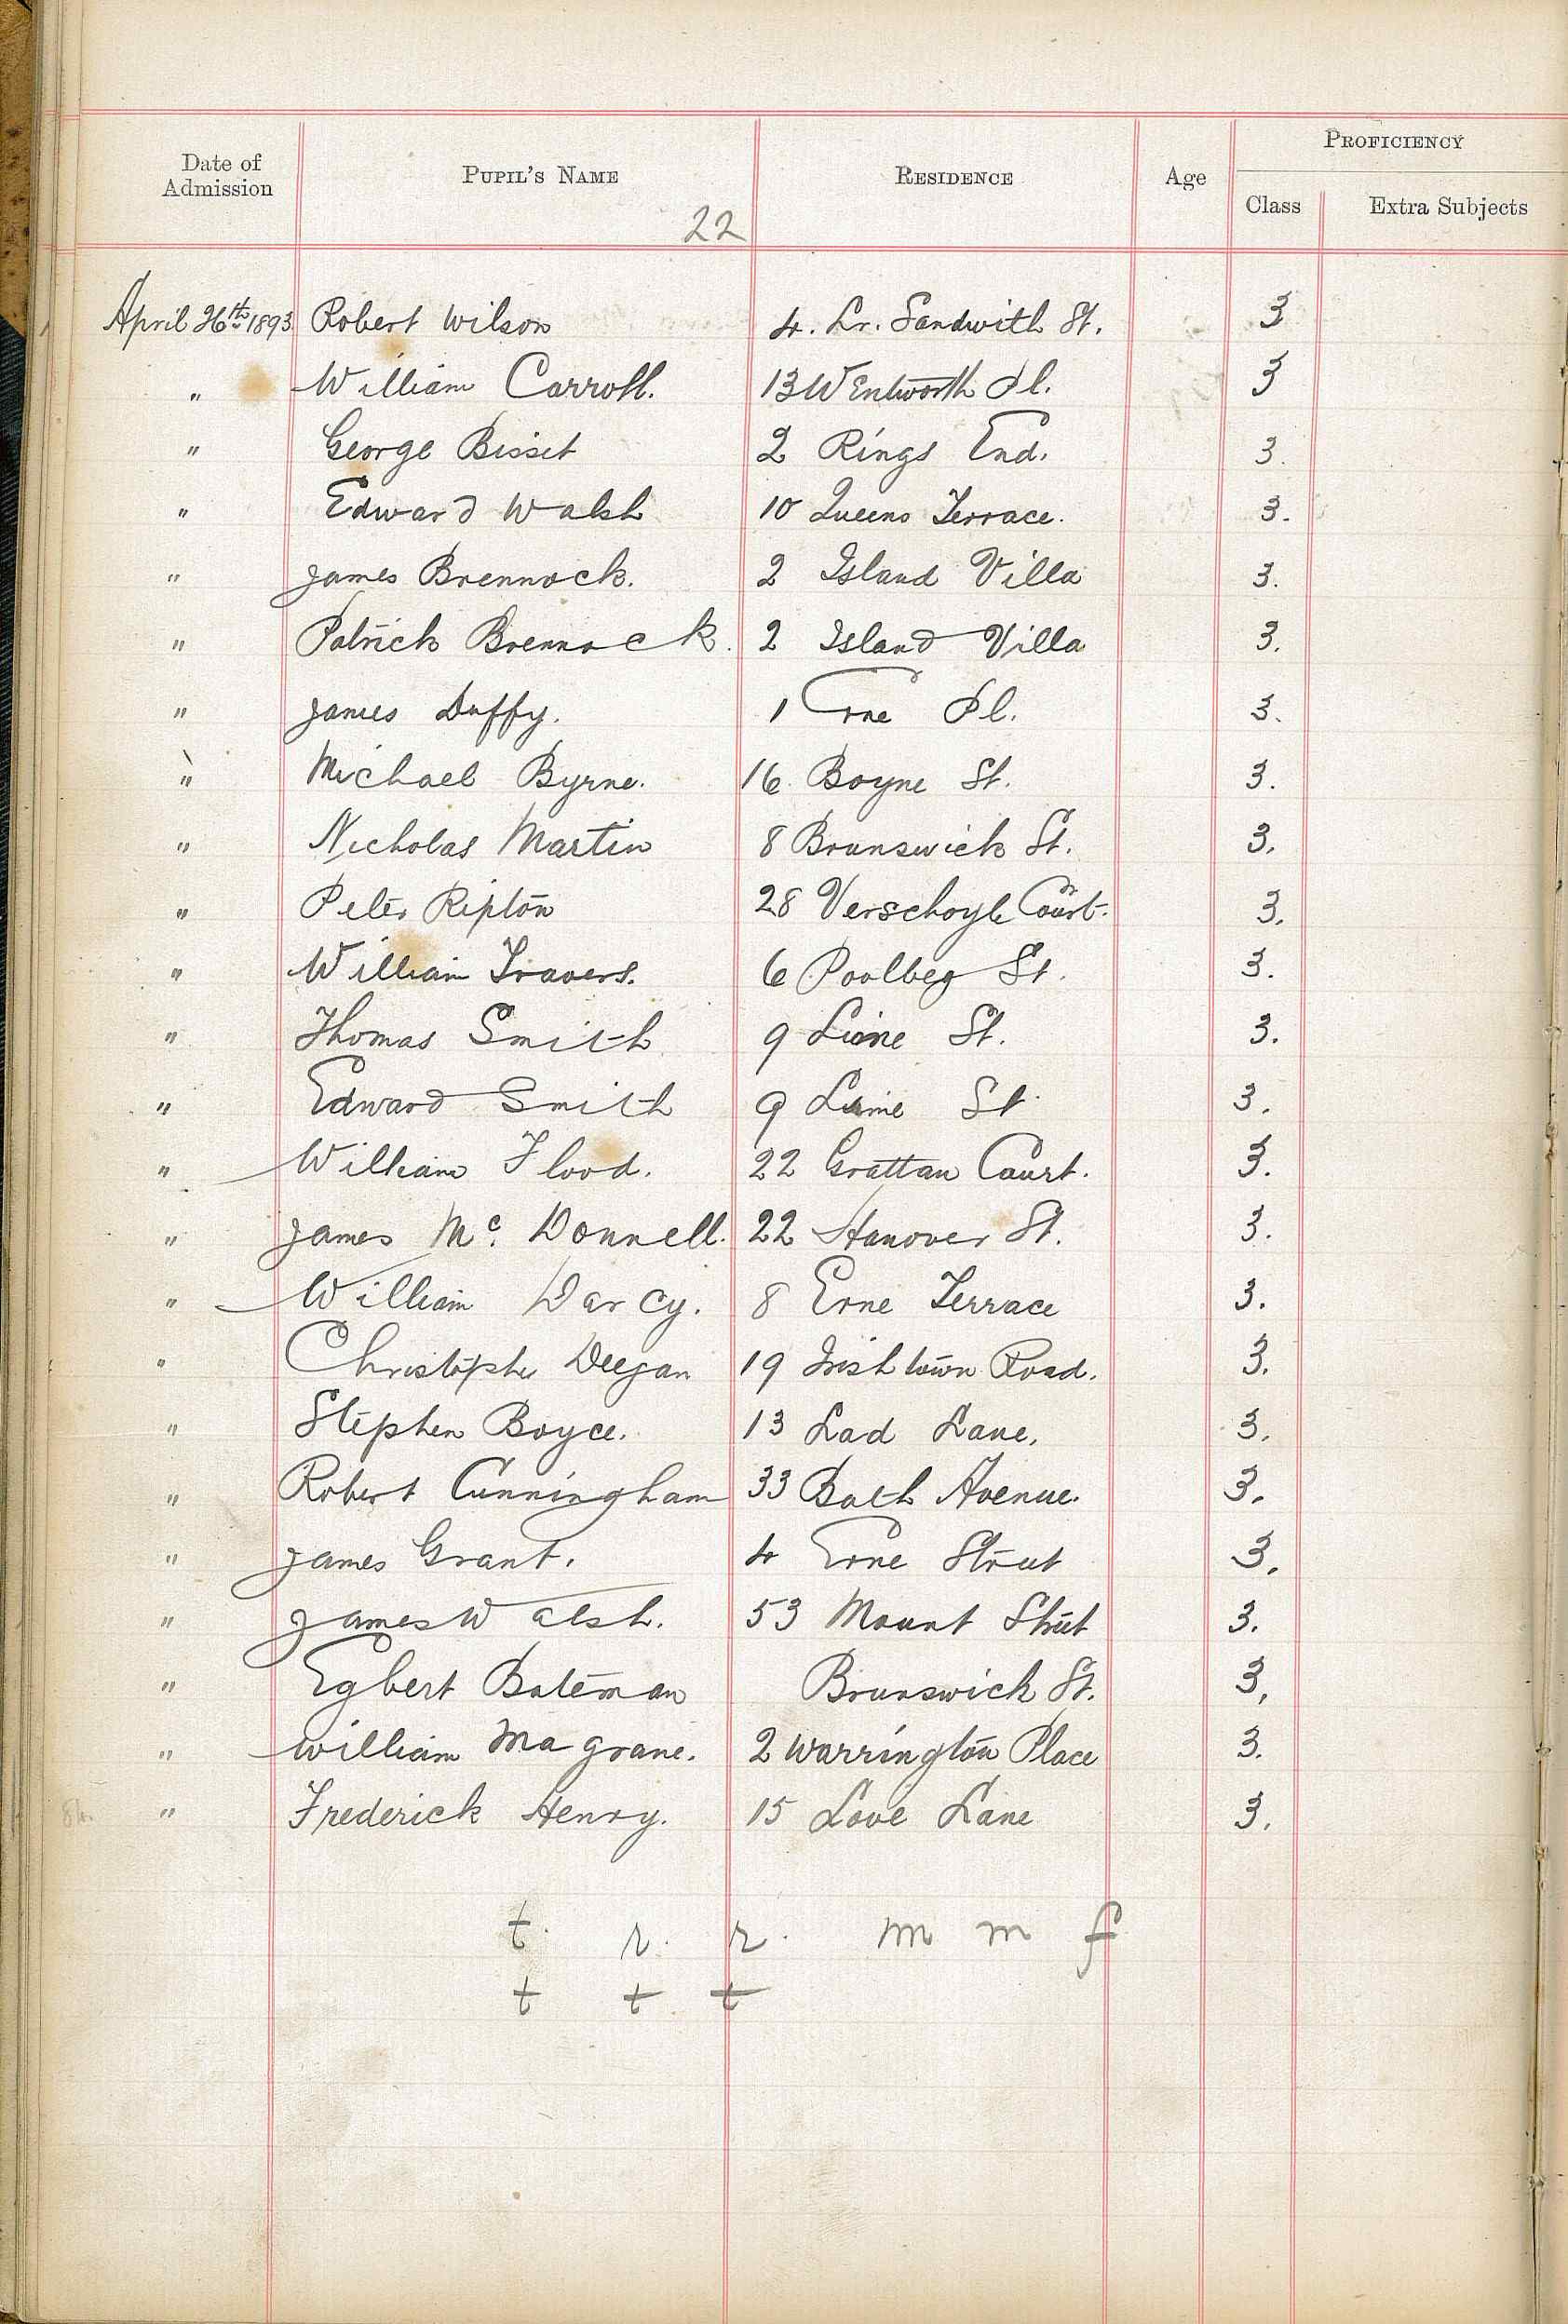 PROFICIENCY
Date of Admission PUPIL'S NAME RESIDENCE Age Class Extra Subjects
22
April 26th 1893 Robert Wilson 4. Lr. Sandwith St. 3
" William Carroll. 13 Wentworth Pl. 3
" George Bisset 2 Rings End. 3.
" Edward Walsh 10 Queens Terrace. 3.
" James Brennock. 2 Island Villa 3.
" Patrick Brennock. 2 Island Villa 3.
" James Duffy. 1 Erne Pl. 3.
" Michael Byrne. 16 Boyne St. 3.
" Nicholas Martin 8 Brunswick St. 3.
" Peter Ripton 28 Verschoyle Court. 3.
" William Travers. 6 Poolbeg St. 3.
" Thomas Smith 9 Lime St. 3.
" Edward Smith 9 Lime St. 3.
" William Flood. 22 Grattan Court. 3.
" James Mc. Donnell. 22 Hanover St. 3.
" William Darcy. 8 Erne Terrace 3.
" Christopher Deegan 19 Irishtown Road. 3.
" Stephen Boyce. 13 Lad Lane. 3.
" Robert Cunningham 33 Bath Avenue. 3.
" James Grant. 4 Erne Street 3.
" James Walsh. 53 Mount Street 3.
" Egbert Bateman Brunswick St. 3,
" William Magrane. 2 Warrington Place 3.
" Frederick Henry. 15 Love Lane 3.
t. r. r. m m f
t t t